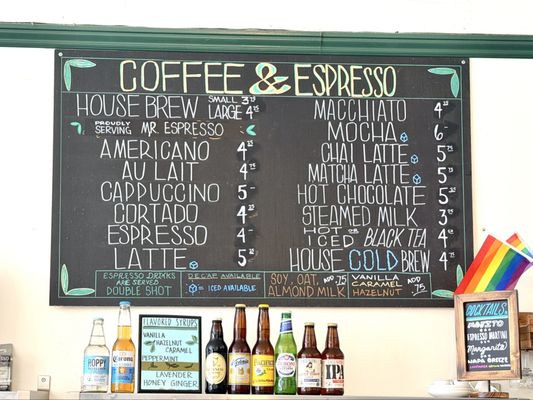 COFFEE & ESPRESSO
HOUSE BREW SMALL 3.75
LARGE 4.25
PROUDLY SERVING MR. ESPRESSO
AMERICANO 4.25
AU LAIT 4.75
CAPPUCCINO 5-
CORTADO
ESPRESSO 4-
LATTE
MACCHIATO
MOCHA 6-
CHAI LATTE
MATCHA LATTE
HOT CHOCOLATE
STEAMED MILK
HOT OR ICED BLACK TEA
HOUSE COLD BREW
ESPRESSO DRINKS
ARE SERVED
DOUBLE SHOT
DECAF AVAILABLE
= ICED AVAILABLE
SOY, OAT, ADD .75
ALMOND MILK
VANILLA
CARAMEL
HAZELNUT
ADD .50
FLAVORED SYRUPS
VANILLA
HAZELNUT
CARAMEL
PEPPERMINT
LAVENDER
HONEY GINGER
HOPPY
Corona
PACIFICO
IPA
COCKTAILS
MOJITO
ESPRESSO MARTINI
Margarita
NAPA BREEZE